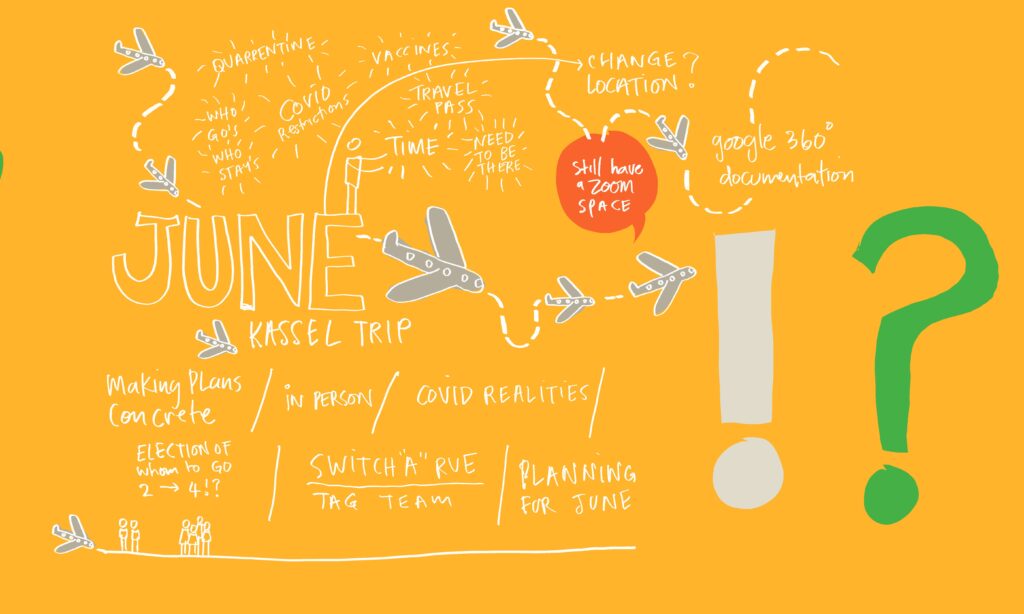 QUARPENTINE
VACCINES
WHO
GO'S
WHO
STAY'S
COVID
Restrictions
TRAVEL
PASS
TIME
NEED
TO BE
THERE
CHANGE?
LOCATION?
Still have
a ZOOM
SPACE
google 360°
documentation
JUNE
KASSEL TRIP
Making Plans
Concrete
/ IN PERSON /
COVID REALITIES /
ELECTION OF
whom to GO
2 → 4!?
/ SWITCH "A" RUE
TAG TEAM
/ PLANNING
FOR JUNE
! ?